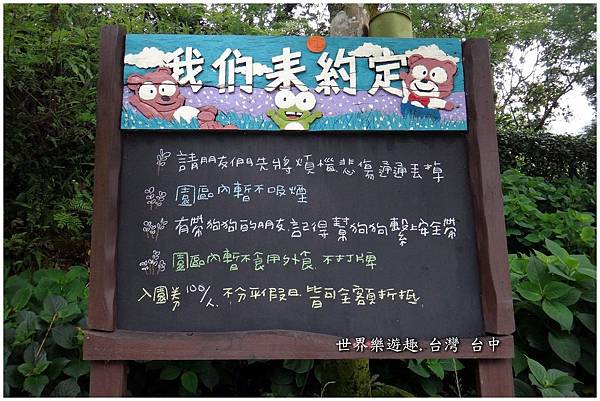 我们来約定
請朋友們先將煩惱悲傷通通丟掉
園區內暫不吸煙
有帶狗狗的朋友,記得幫狗狗繫上安全帶
園區內暫不食用外食.不打牌
入園券100/人.不分平假日.皆可全額折抵.
世界樂遊趣.台灣 台中